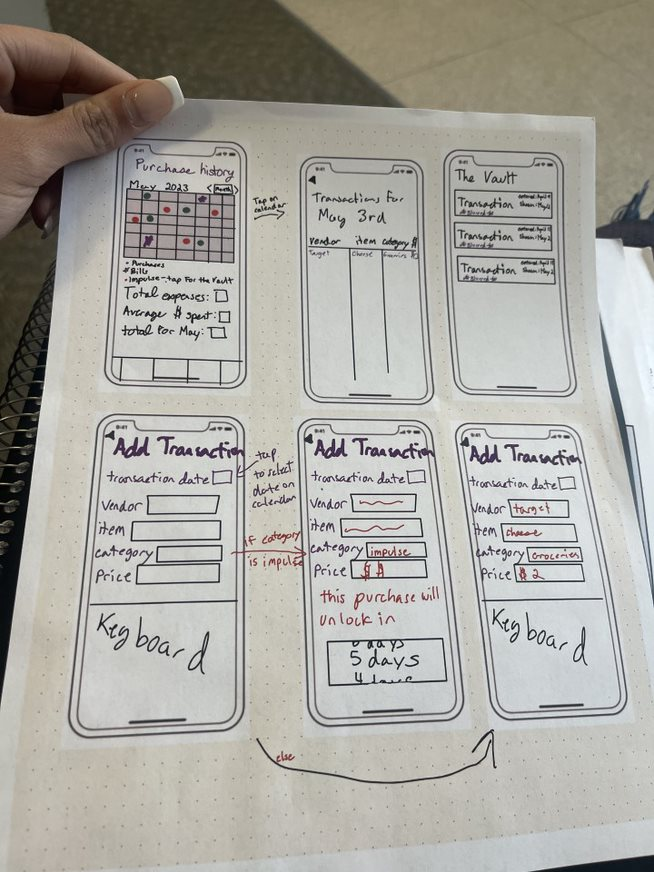 9:41
Purchase history
May 2023 < Month >
• Purchases
# Bills
• Impulse - tap for the Vault
Total expenses:
Average $ spent:
total for May:
Tap on
calendar
9:41
Transactions for
May 3rd
Vendor item category $
Target Cheese Groceries
9:41
The Vault
Transaction
Transaction
Transaction
9:41
Add Transaction
transaction date
Vendor
item
category
Price
Keyboard
tap
to select
date on
calendar
if category
is impulse
9:41
Add Transaction
transaction date
Vendor
item
category impulse
Price $ $
this purchase will
unlock in
6 days
5 days
4 days
9:41
Add Transaction
transaction date
Vendor target
Item cheese
category Groceries
Price $ 2
Keyboard
else